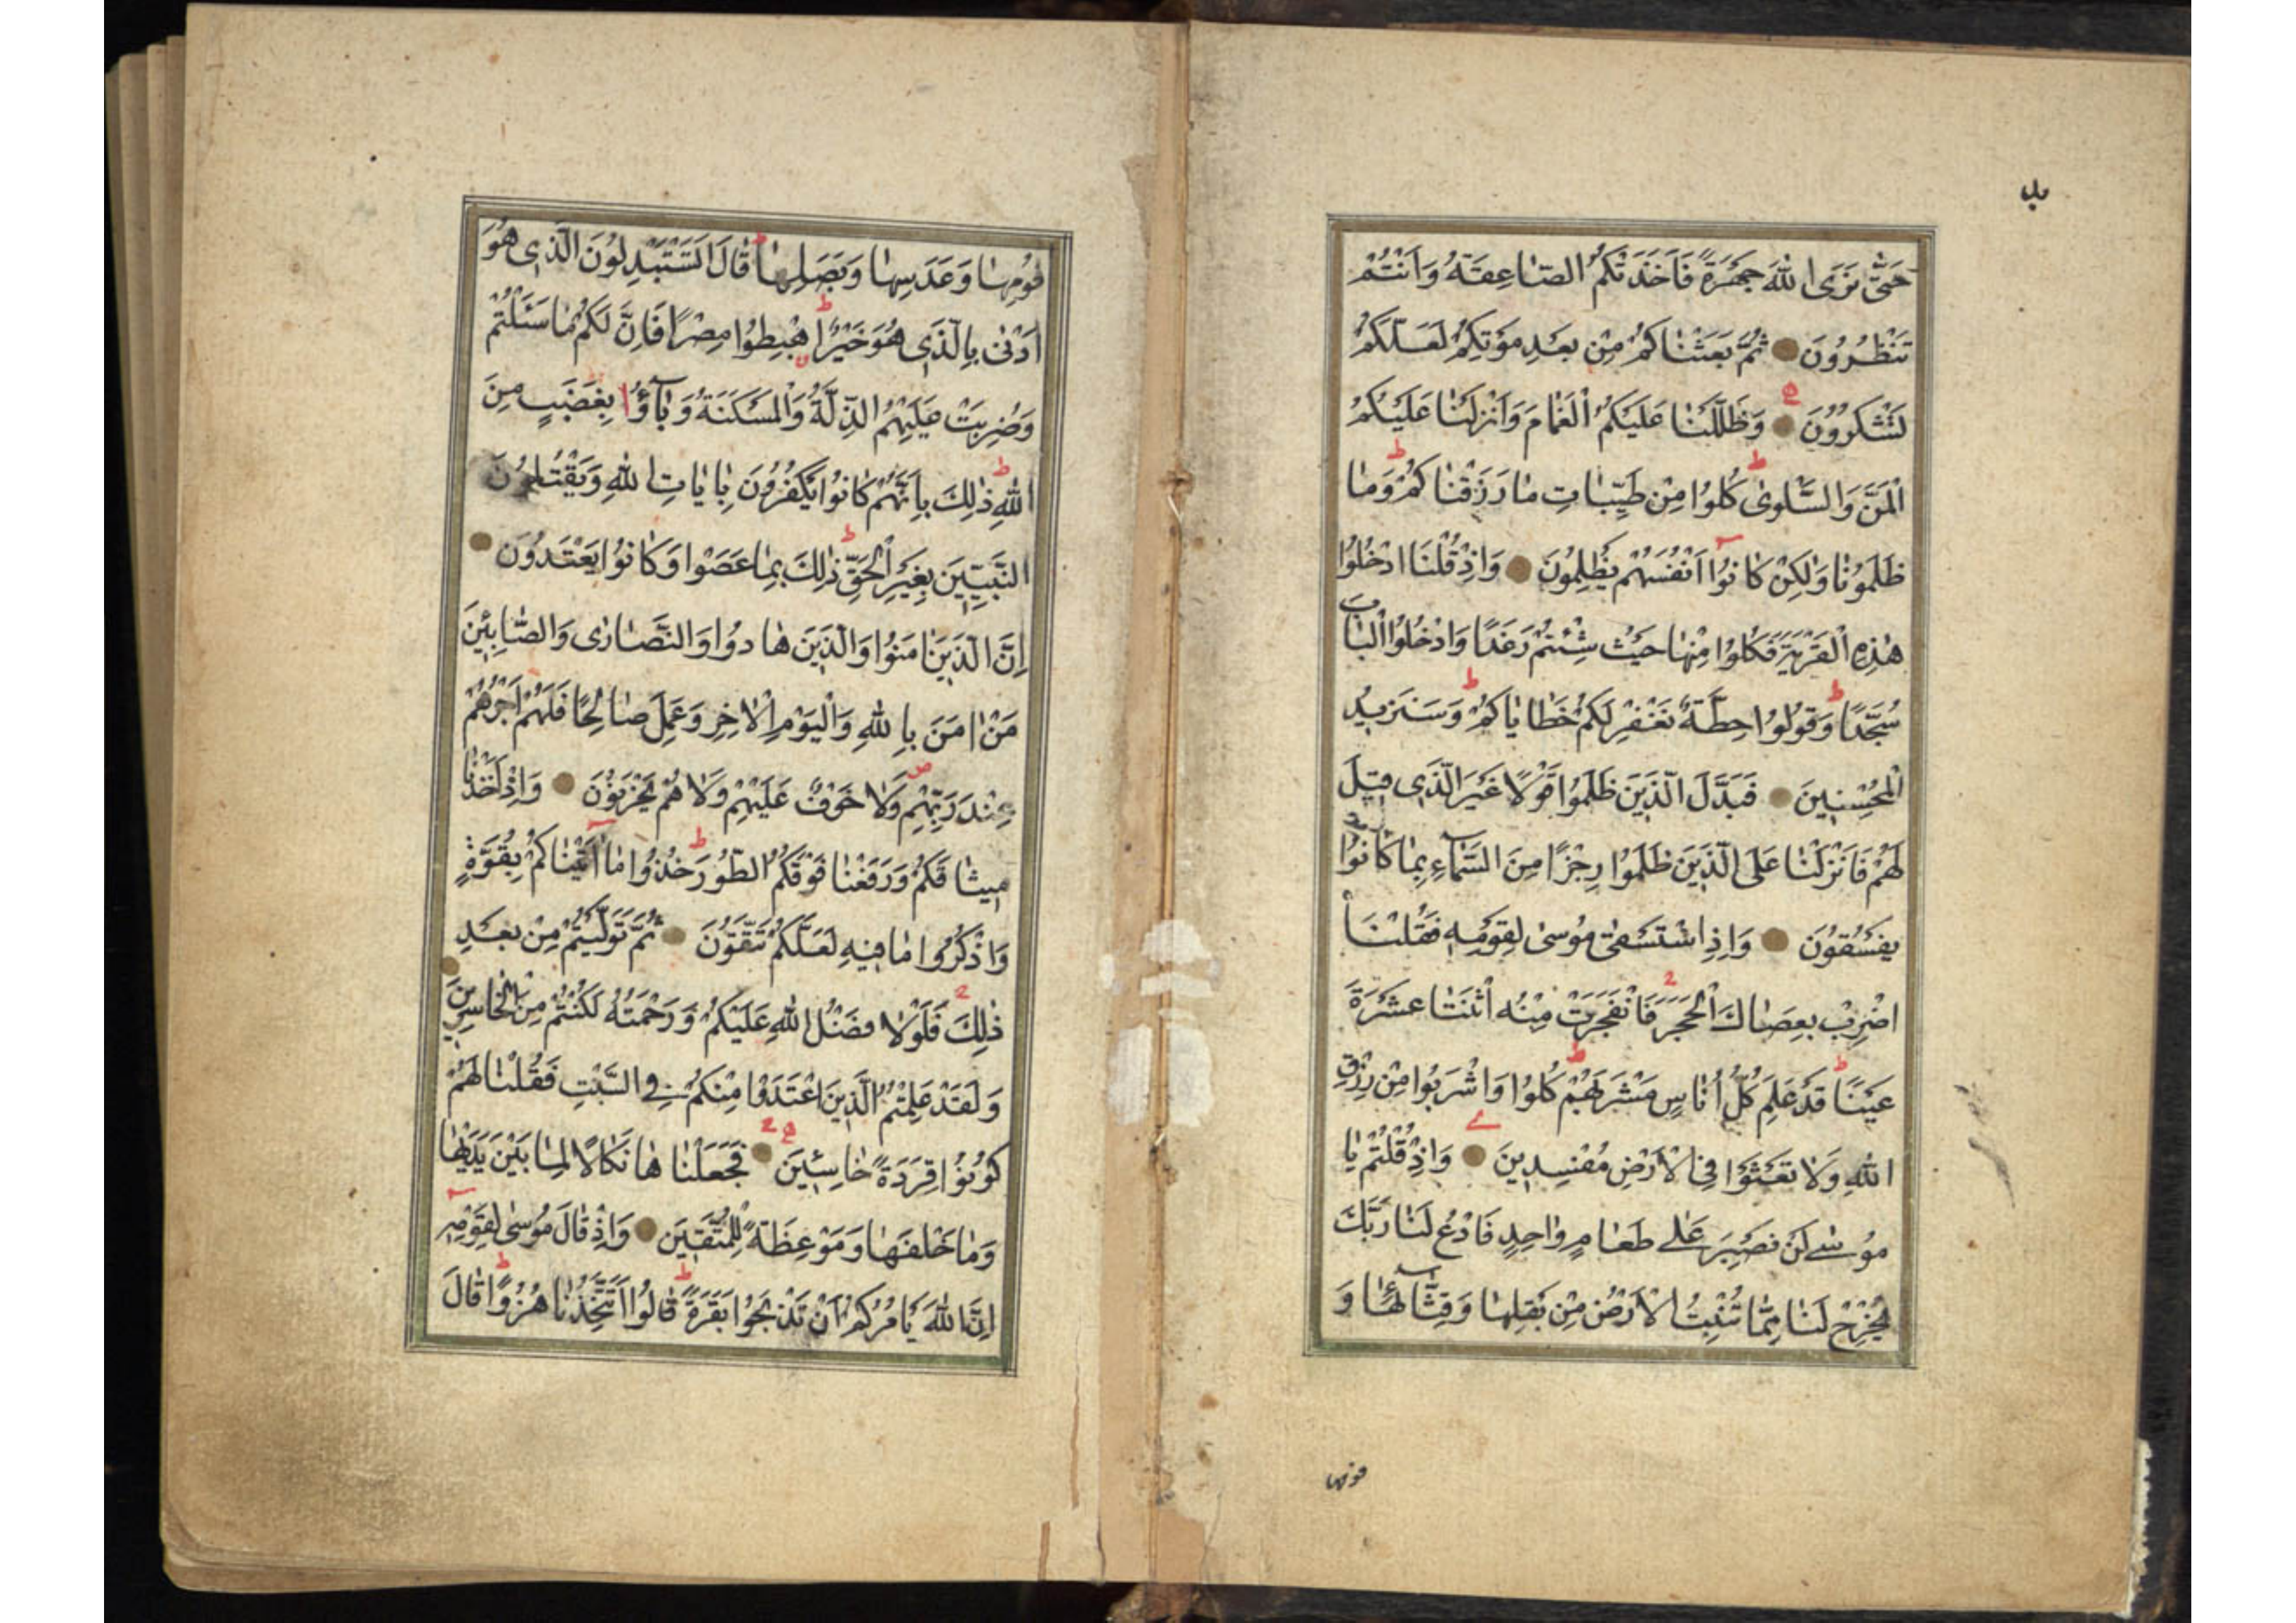 حَتّٰى نَرَى اللّٰهَ جَهْرَةً فَاَخَذَتْكُمُ الصّٰاعِقَةُ وَاَنْتُمْ
تَنْظُرُونَ ثُمَّ بَعَثْنٰاكُمْ مِنْ بَعْدِ مَوْتِكُمْ لَعَلَّكُمْ
تَشْكُرُونَ وَظَلَّلْنٰا عَلَيْكُمُ الْغَمٰامَ وَاَنْزَلْنٰا عَلَيْكُمُ
الْمَنَّ وَالسَّلْوٰى كُلُوا مِنْ طَيِّبٰاتِ مٰا رَزَقْنٰاكُمْ وَمٰا
ظَلَمُونٰا وَلٰكِنْ كٰانُوا اَنْفُسَهُمْ يَظْلِمُونَ وَاِذْ قُلْنَا ادْخُلُوا
هٰذِهِ الْقَرْيَةَ فَكُلُوا مِنْهٰا حَيْثُ شِئْتُمْ رَغَدًا وَادْخُلُوا الْبٰابَ
سُجَّدًا وَقُولُوا حِطَّةٌ نَغْفِرْ لَكُمْ خَطٰايٰاكُمْ وَسَنَزِيدُ
الْمُحْسِنِينَ فَبَدَّلَ الَّذِينَ ظَلَمُوا قَوْلًا غَيْرَ الَّذِى قِيلَ
لَهُمْ فَاَنْزَلْنٰا عَلَى الَّذِينَ ظَلَمُوا رِجْزًا مِنَ السَّمٰاءِ بِمٰا كٰانُوا
يَفْسُقُونَ وَاِذِ اسْتَسْقٰى مُوسٰى لِقَوْمِهِ فَقُلْنَا
اضْرِبْ بِعَصٰاكَ الْحَجَرَ فَانْفَجَرَتْ مِنْهُ اثْنَتٰا عَشْرَةَ
عَيْنًا قَدْ عَلِمَ كُلُّ اُنٰاسٍ مَشْرَبَهُمْ كُلُوا وَاشْرَبُوا مِنْ رِزْقِ
اللّٰهِ وَلٰا تَعْثَوْا فِى الْاَرْضِ مُفْسِدِينَ وَاِذْ قُلْتُمْ يٰا
مُوسٰى لَنْ نَصْبِرَ عَلٰى طَعٰامٍ وٰاحِدٍ فَادْعُ لَنٰا رَبَّكَ
يُخْرِجْ لَنٰا مِمّٰا تُنْبِتُ الْاَرْضُ مِنْ بَقْلِهٰا وَقِثّٰائِهٰا وَ
فومها
فُومِهٰا وَعَدَسِهٰا وَبَصَلِهٰا قٰالَ اَتَسْتَبْدِلُونَ الَّذِى هُوَ
اَدْنٰى بِالَّذِى هُوَ خَيْرٌ اهْبِطُوا مِصْرًا فَاِنَّ لَكُمْ مٰا سَئَلْتُمْ
وَضُرِبَتْ عَلَيْهِمُ الذِّلَّةُ وَالْمَسْكَنَةُ وَبٰاؤُا بِغَضَبٍ مِنَ
اللّٰهِ ذٰلِكَ بِاَنَّهُمْ كٰانُوا يَكْفُرُونَ بِاٰيٰاتِ اللّٰهِ وَيَقْتُلُونَ
النَّبِيِّينَ بِغَيْرِ الْحَقِّ ذٰلِكَ بِمٰا عَصَوْا وَكٰانُوا يَعْتَدُونَ
اِنَّ الَّذِينَ اٰمَنُوا وَالَّذِينَ هٰادُوا وَالنَّصٰارٰى وَالصّٰابِئِينَ
مَنْ اٰمَنَ بِاللّٰهِ وَالْيَوْمِ الْاٰخِرِ وَعَمِلَ صٰالِحًا فَلَهُمْ اَجْرُهُمْ
عِنْدَ رَبِّهِمْ وَلٰا خَوْفٌ عَلَيْهِمْ وَلٰا هُمْ يَحْزَنُونَ وَاِذْ اَخَذْنٰا
مِيثٰاقَكُمْ وَرَفَعْنٰا فَوْقَكُمُ الطُّورَ خُذُوا مٰا اٰتَيْنٰاكُمْ بِقُوَّةٍ
وَاذْكُرُوا مٰا فِيهِ لَعَلَّكُمْ تَتَّقُونَ ثُمَّ تَوَلَّيْتُمْ مِنْ بَعْدِ
ذٰلِكَ فَلَوْلٰا فَضْلُ اللّٰهِ عَلَيْكُمْ وَرَحْمَتُهُ لَكُنْتُمْ مِنَ الْخٰاسِرِينَ
وَلَقَدْ عَلِمْتُمُ الَّذِينَ اعْتَدَوْا مِنْكُمْ فِى السَّبْتِ فَقُلْنٰا لَهُمْ
كُونُوا قِرَدَةً خٰاسِئِينَ فَجَعَلْنٰاهٰا نَكٰالًا لِمٰا بَيْنَ يَدَيْهٰا
وَمٰا خَلْفَهٰا وَمَوْعِظَةً لِلْمُتَّقِينَ وَاِذْ قٰالَ مُوسٰى لِقَوْمِهِ
اِنَّ اللّٰهَ يَاْمُرُكُمْ اَنْ تَذْبَحُوا بَقَرَةً قٰالُوا اَتَتَّخِذُنٰا هُزُوًا قٰالَ